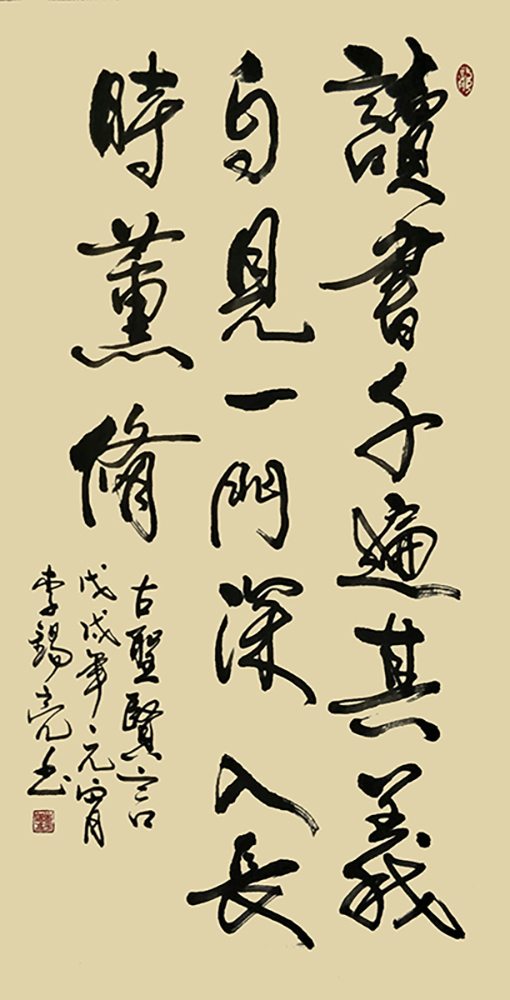 讀書千遍其義
自見一門深入長
時薰修
古聖賢言
戊戌年元宵月
李錫亮书